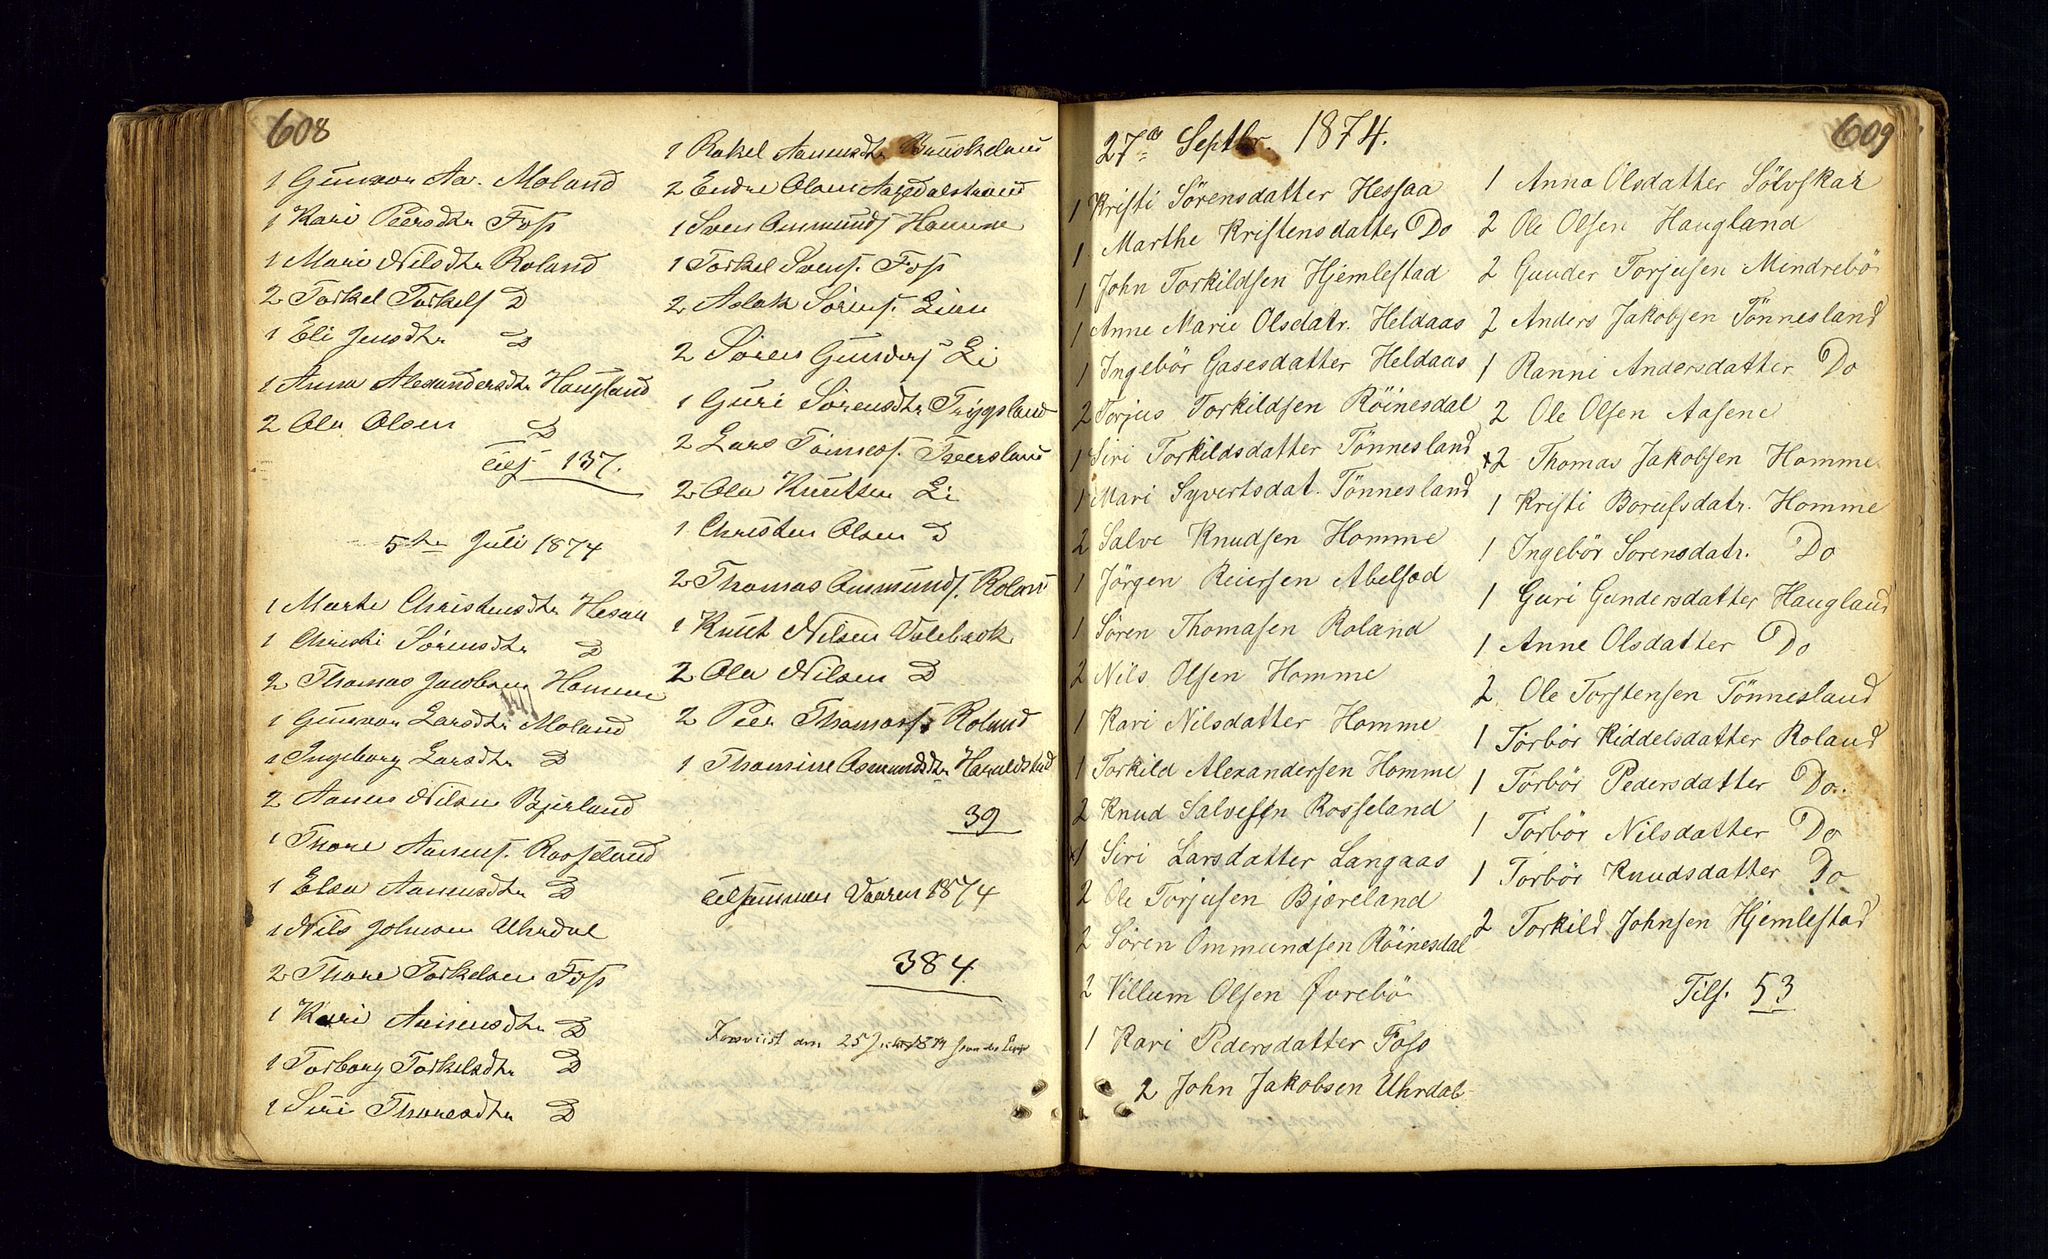 608
1 Gunvor Aa. Moland
1 Kari Peersdtr Foss
1 Mari Nilsdtr Roland
2 Torkel Torkels D
1 Eli Jensdtr D
1 Anna Alexandersdtr Haugland
2 Ola Olsen D
Tils 137.
5te Juli 1874
1 Marte Christensdtr Hesaa
1 Christi Sørensdtr D
2 Thomas Jacobsen Homme
1 Gunvor Larsdtr Moland
1 Ingeborg Larsdtr D
2 Aanen Nilsen Bjerland
1 Thore Aanens. Rosseland
1 Elen Aanensdtr D
1 Nils Johnsen Uhrdal
2 Thore Torkelsen Foss
1 Kari Aanensdtr D
1 Torborg Torkelsdtr D
1 Siri Thoresdtr D
1 Rakel Aanensdtr
2 Endre Olsen
1 Sven Ommunds Homme
1 Torkel Svens. Foss
2 Aslak Sørens. Lien
2 Søren Gunders Li
1 Guri Sørensdtr Trygsland
2 Lars Tønness.
2 Ola Knutsen Li
1 Christen Olsen D
2 Thomas Ommunds. Roland
1 Knut Nilsen Valebrok
2 Ola Nilsen D
2 Peer Thomass. Roland
1 Thomine Osmundsdtr Haraldstad
39
Tilsammen Vaaren 1874
384.
den 25 1874
609
27de Septbr. 1874.
1 Kristi Sörensdatter Hessaa
1 Marthe Kristensdatter Do
1 John Torkildsen Hjemlestad
1 Anne Marie Olsdatr. Heldaas
1 Ingebör Gasesdatter Heldaas
2 Torjus Torkildsen Röinesdal
1 Siri Torkildsdatter Tönnesland
1 Mari Syvertsdat. Tönnesland
2 Salve Knudsen Homme
1 Jörgen Reiersen Abelsod
1 Sören Thomasen Roland
2 Nils Olsen Homme
1 Kari Nilsdatter Homme
1 Torkild Alexandersen Homme
2 Knud Salvesen Rosseland
x1 Siri Larsdatter Langaas
2 Ole Torjusen Bjæreland
2 Sören Ommundsen Röinesdal
2 Villum Olsen Øvrebö
1 Kari Pedersdatter Foss
2 John Jakobsen Uhrdal
1 Anna Olsdatter Sölvskar
2 Ole Olsen Haugland
2 Gunder Torjusen Mindrebö
2 Anders Jakobsen Tönnesland
1 Ranni Andersdatter Do
2 Ole Olsen Aasene
x2 Thomas Jakobsen Homme
1 Kristi Borufsdatr. Homme
1 Ingebör Sorensdatr. Do
1 Guri Gundersdatter Haugland
1 Anne Olsdatter Do
2 Ole Torstensen Tönnesland
1 Torbör Keddelsdatter Roland
1 Torbör Pedersdatter Do.
1 Torbör Nilsdatter Do
1 Torbör Knudsdatter Do
2 Torkild Johnsen Hjemlestad
Tils. 53